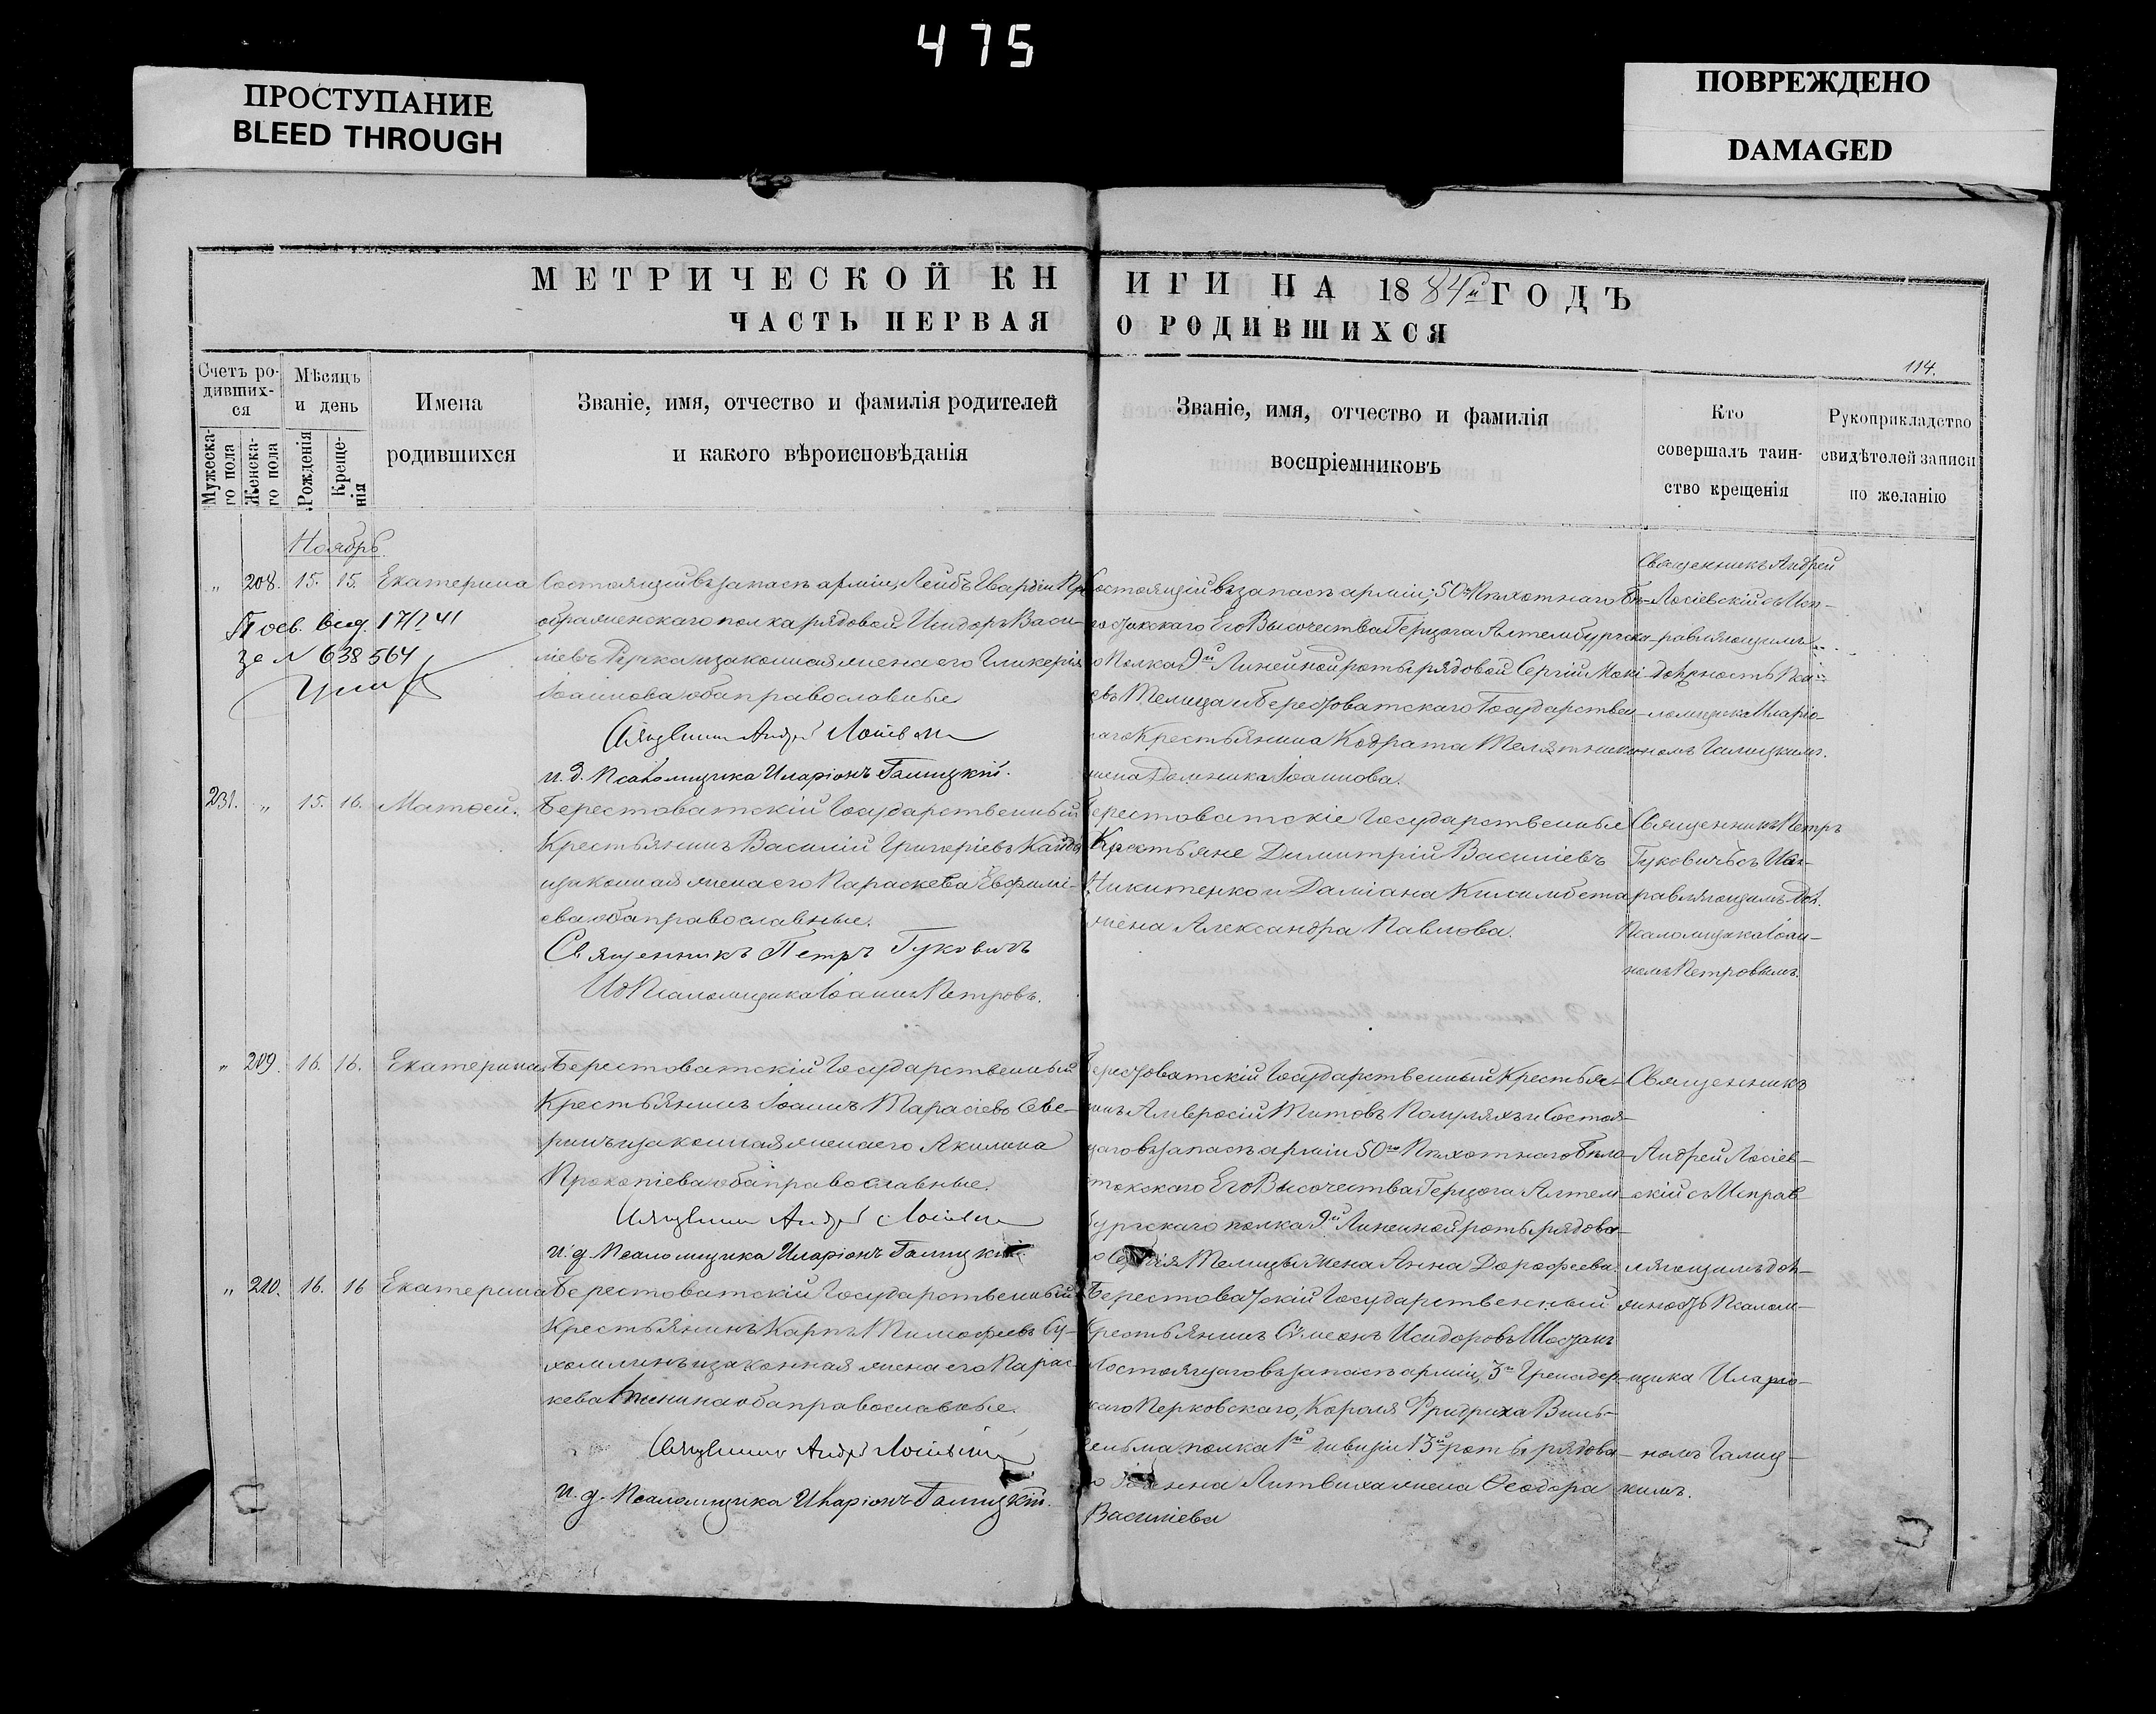 475
ПРОСТУПАНИЕ
BLEED THROUGH
ПОВРЕЖДЕНО
DAMAGED
МЕТРИЧЕСКОЙ КНИГИ НА 1884й ГОДЪ
ЧАСТЬ ПЕРВАЯ О РОДИВШИХСЯ
114.
Счетъ ро-
дивших-
ся
Мужеска-
го пола
Женска-
го пола
Мѣсяцъ
и день
Рожденія
Креще-
нія
Имена
родившихся
Званіе, имя, отчество и фамилія родителей
и какого вѣроисповѣданія
Званіе, имя, отчество и фамилія
воспріемниковъ
Кто
совершалъ таин-
ство крещенія
Рукоприкладство
свидѣтелей записи
по желанію
Ноябрь
„ 208. 15. 15. Екатерина
17/I 41
№ 638564
Состоящій въ запасѣ арміи, Лейбъ Гвардіи Пре
ображенскаго полка рядовой Исидоръ Васи-
ліевъ и законная жена его Гликерія
Іоаннова оба православные
Священникъ Андрей Лосіевскій
и. д. Псаломщика Иларіонъ Галицкій.
Состоящій въ запасѣ арміи, 50го Пѣхотнаго Бѣ-
лостокскаго Его Высочества Герцога Альтенбургска-
го Полка 9й Линейной роты рядовой Сергій
Телица и Берестоватскаго Государствен-
наго Крестьянина Кодрата
жена Домника Іоаннова.
Священникъ Андрей
Лосіевскій съ Исп-
равляющимъ
должность Пса-
ломщика Иларіо-
номъ Галицкимъ.
231. „ 15. 16. Матѳей.
Берестоватскій Государственный
Крестьянинъ Василій Григоріевъ
и законная жена его Параскева Евфимі-
ева оба православные.
Священникъ Петръ Гуковичъ
ИД Псаломщика Іоаннъ Петровъ.
Берестоватскіе Государственные
Крестьяне Димитрій Василіевъ
Никитенко и Даміана
жена Александра Павлова.
Священникъ Петръ
Гуковичъ съ Исп-
равляющимъ Дол.
Псаломщика Іоан-
номъ Петровымъ
„ 209. 16. 16. Екатерина
Берестоватскій Государственный
Крестьянинъ Іоаннъ Тарасіевъ Севе-
ринъ и законная жена его Акилина
Прокопіева оба православные.
Священникъ Андрей Лосіевскій
и. д. Псаломщика Иларіонъ Галицкій.
Берестоватскій Государственный Крестья-
нинъ Амвросій Титовъ и Состоя-
щаго въ запасѣ арміи 50го Пѣхотнаго Бѣло-
стокскаго Его Высочества Герцога Алтен-
бургскаго полка 9й Линейной роты рядова-
го Сергія Телицы жена Анна Дорофеева.
Священникъ
Андрей Лосіев-
скій съ Исправ-
ляющимъ дол-
жность Псалом-
щика Иларіо-
номъ Галиц-
кимъ.
„ 210. 16. 16 Екатерина
Берестоватскій Государственный
Крестьянинъ Карпъ Тимофеевъ Су-
хомлинъ и законная жена его Парас-
кева оба православные.
Священникъ Андрей Лосіевскій
и. д. Псаломщика Иларіонъ Галицкій.
Берестоватскій Государственный
Крестьянинъ Сѵмеонъ Исидоровъ
Состоящаго въ запасѣ арміи, 3й Гренадер-
скаго Перновскаго, Короля Фридриха Виль-
гельма полка 1й дивизіи 13й роты рядова-
го Іоанна жена Ѳеодора
Василіева